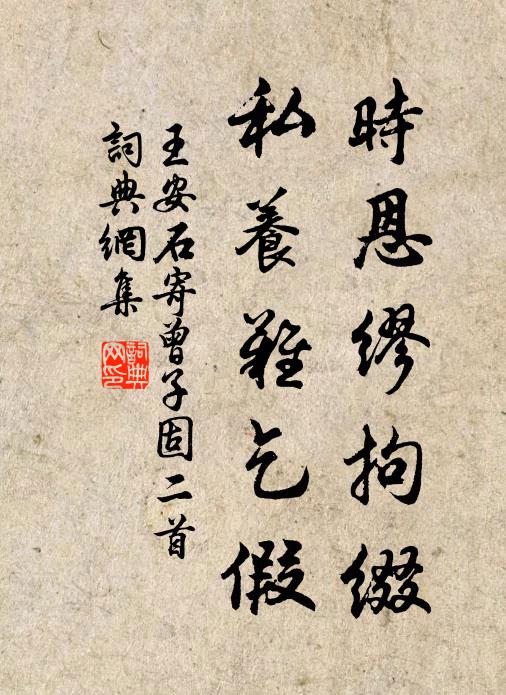 時恩繆拘綴
私養難乞假
王安石寄曾子固二首
詞典網集
詞典网印